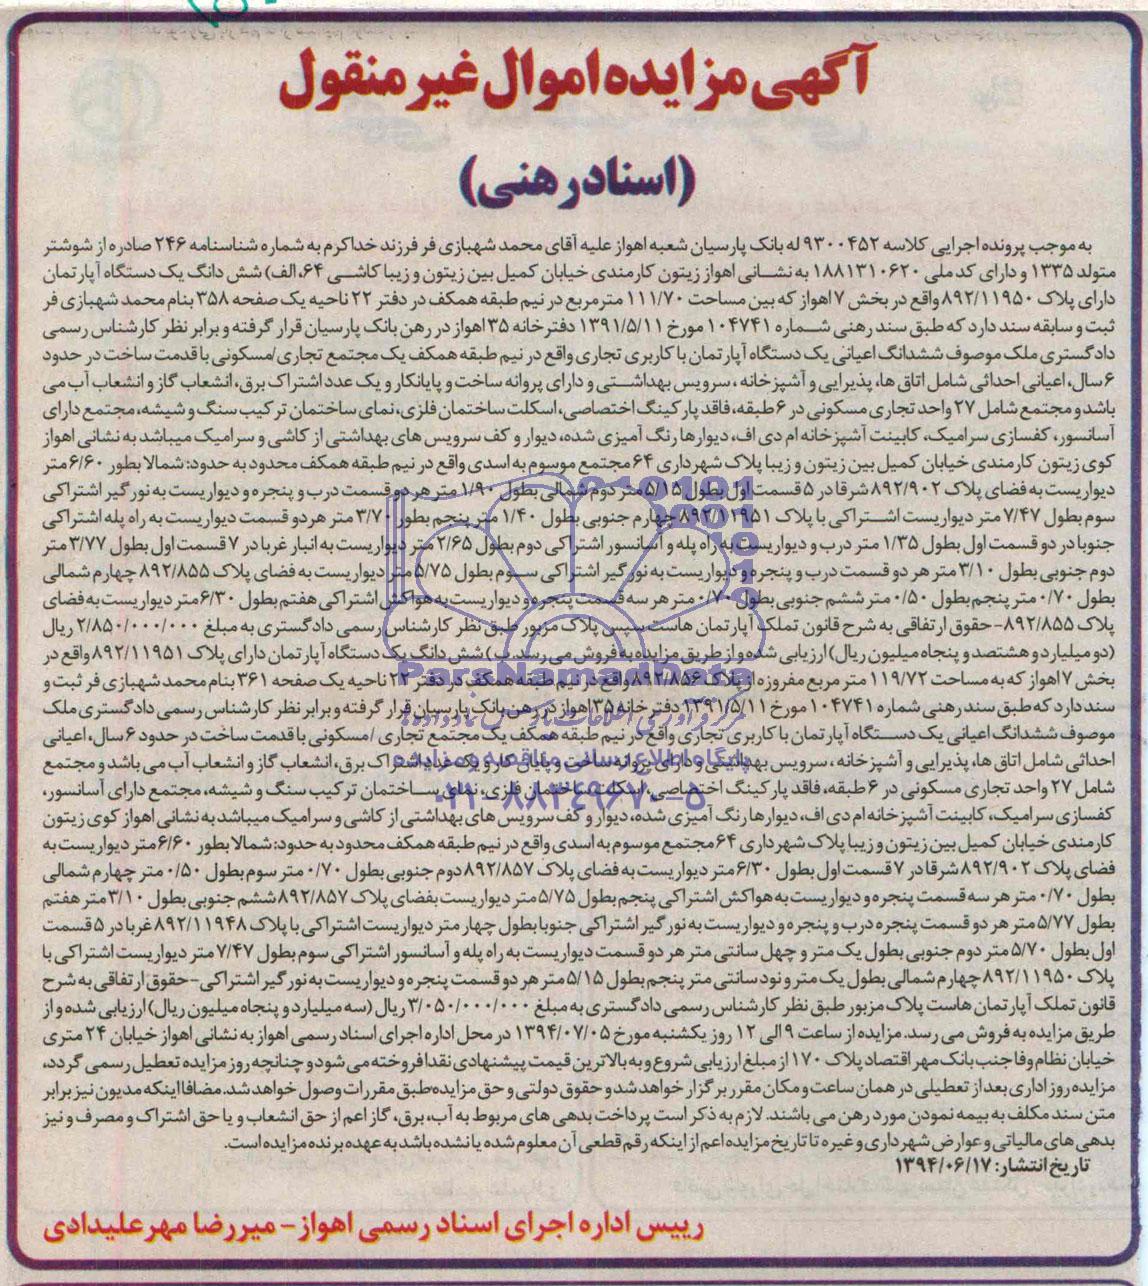 آگهی مزایده اموال غیر منقول
(اسناد رهنی)
به موجب پرونده اجرایی کلاسه ۹۳۰۰۴۵۲ له بانک پارسیان شعبه اهواز علیه آقای محمد شهبازی فر فرزند خداکرم به شماره شناسنامه ۲۴۶ صادره از شوشتر
متولد ۱۳۳۵ و دارای کد ملی ۱۸۸۱۳۱۰۶۲۰ به نشانی اهواز زیتون کارمندی خیابان کمیل بین زیتون و زیبا کاشی ۶۴، الف) شش دانگ یک دستگاه آپارتمان
دارای پلاک ۸۹۲/۱۱۹۵۰ واقع در بخش ۷ اهواز که بین مساحت ۱۱۱/۷۰ مترمربع در نیم طبقه همکف در دفتر ۲۲ ناحیه یک صفحه ۳۵۸ بنام محمد شهبازی فر
ثبت و سابقه سند دارد که طبق سند رهنی شماره ۱۰۴۷۴۱ مورخ ۱۳۹۱/۵/۱۱ دفترخانه ۳۵ اهواز در رهن بانک پارسیان قرار گرفته و برابر نظر کارشناس رسمی
دادگستری ملک موصوف ششدانگ اعیانی یک دستگاه آپارتمان با کاربری تجاری واقع در نیم طبقه همکف یک مجتمع تجاری/مسکونی با قدمت ساخت در حدود
۶ سال، اعیانی احداثی شامل اتاق ها، پذیرایی و آشپزخانه ، سرویس بهداشتی و دارای پروانه ساخت و پایانکار و یک عدد اشتراک برق، انشعاب گاز و انشعاب آب می
باشد و مجتمع شامل ۲۷ واحد تجاری مسکونی در ۶ طبقه، فاقد پارکینگ اختصاصی، اسکلت ساختمان فلزی، نمای ساختمان ترکیب سنگ و شیشه، مجتمع دارای
آسانسور، کفسازی سرامیک، کابینت آشپزخانه ام دی اف، دیوارها رنگ آمیزی شده، دیوار و کف سرویس های بهداشتی از کاشی و سرامیک میباشد به نشانی اهواز
کوی زیتون کارمندی خیابان کمیل بین زیتون و زیبا پلاک شهرداری ۶۴ مجتمع موسوم به اسدی واقع در نیم طبقه همکف محدود به حدود: شمالا بطور ۶/۶۰ متر
دیواریست به فضای پلاک ۸۹۲/۹۰۲ شرقا در ۵ قسمت اول بطول ۵/۱۵ متر دوم شمالی بطول ۱/۹۰ متر هر دو قسمت درب و پنجره و دیواریست به نورگیر اشتراکی
سوم بطول ۷/۴۷ متر دیواریست اشتراکی با پلاک ۸۹۲/۱۱۹۵۱ چهارم جنوبی بطول ۱/۴۰ متر پنجم بطور ۳/۷۰ متر هردو قسمت دیواریست به راه پله اشتراکی
جنوبا در دو قسمت اول بطول ۱/۳۵ متر درب و دیواریست به راه پله و آسانسور اشتراکی دوم بطول ۲/۶۵ متر دیواریست به انبار غربا در ۷ قسمت اول بطول ۳/۷۷ متر
دوم جنوبی بطول ۳/۱۰ متر هر دو قسمت درب و پنجره و دیواریست به نورگیر اشتراکی سوم بطول ۵/۷۵ متر دیواریست به فضای پلاک ۸۹۲/۸۵۵ چهارم شمالی
بطول ۰/۷۰ متر پنجم بطول ۰/۵۰ متر ششم جنوبی بطول ۰/۷۰ متر هر سه قسمت پنجره و دیواریست به هواکش اشتراکی هفتم بطول ۶/۳۰ متر دیواریست به فضای
پلاک ۸۹۲/۸۵۵- حقوق ارتفاقی به شرح قانون تملک آپارتمان هاست سپس پلاک مزبور طبق نظر کارشناس رسمی دادگستری به مبلغ ۲/۸۵۰/۰۰۰/۰۰۰ ریال
(دو میلیارد و هشتصد و پنجاه میلیون ریال) ارزیابی شده و از طریق مزایده به فروش می رسد. ب) شش دانگ یک دستگاه آپارتمان دارای پلاک ۸۹۲/۱۱۹۵۱ واقع در
بخش ۷ اهواز که به مساحت ۱۱۹/۷۲ متر مربع مفروزه از پلاک ۸۹۲/۸۵۶ واقع در نیم طبقه همکف در دفتر ۲۲ ناحیه یک صفحه ۳۶۱ بنام محمد شهبازی فر ثبت و
سند دارد که طبق سند رهنی شماره ۱۰۴۷۴۱ مورخ ۱۳۹۱/۵/۱۱ دفترخانه ۳۵ اهواز در رهن بانک پارسیان قرار گرفته و برابر نظر کارشناس رسمی دادگستری ملک
موصوف ششدانگ اعیانی یک دستگاه آپارتمان با کاربری تجاری واقع در نیم طبقه همکف یک مجتمع تجاری /مسکونی با قدمت ساخت در حدود ۶ سال، اعیانی
احداثی شامل اتاق ها، پذیرایی و آشپزخانه ، سرویس بهداشتی و دارای پروانه ساخت و پایان کار و یک عدد اشتراک برق، انشعاب گاز و انشعاب آب می باشد و مجتمع
شامل ۲۷ واحد تجاری مسکونی در ۶ طبقه، فاقد پارکینگ اختصاصی، اسکلت ساختمان فلزی، نمای ساختمان ترکیب سنگ و شیشه، مجتمع دارای آسانسور،
کفسازی سرامیک، کابینت آشپزخانه ام دی اف، دیوارها رنگ آمیزی شده، دیوار و کف سرویس های بهداشتی از کاشی و سرامیک میباشد به نشانی اهواز کوی زیتون
کارمندی خیابان کمیل بین زیتون و زیبا پلاک شهرداری ۶۴ مجتمع موسوم به اسدی واقع در نیم طبقه همکف محدود به حدود: شمالا بطور ۶/۶۰ متر دیواریست به
فضای پلاک ۸۹۲/۹۰۲ شرقا در ۷ قسمت اول بطول ۶/۳۰ متر دیواریست به فضای پلاک ۸۹۲/۸۵۷ دوم جنوبی بطول ۰/۷۰ متر سوم بطول ۰/۵۰ متر چهارم شمالی
بطول ۰/۷۰ متر هر سه قسمت پنجره و دیواریست به هواکش اشتراکی پنجم بطول ۵/۷۵ متر دیواریست بفضای پلاک ۸۹۲/۸۵۷ ششم جنوبی بطول ۳/۱۰ متر هفتم
بطول ۵/۷۷ متر هر دو قسمت پنجره درب و پنجره و دیواریست به نورگیر اشتراکی جنوبا بطول چهار متر دیواریست اشتراکی با پلاک ۸۹۲/۱۱۹۴۸ غربا در ۵ قسمت
اول بطول ۵/۷۰ متر دوم جنوبی بطول یک متر و چهل سانتی متر هر دو قسمت دیواریست به راه پله و آسانسور اشتراکی سوم بطول ۷/۴۷ متر دیواریست اشتراکی با
پلاک ۸۹۲/۱۱۹۵۰ چهارم شمالی بطول یک متر و نود سانتی متر پنجم بطول ۵/۱۵ متر هر دو قسمت پنجره و دیواریست به نورگیر اشتراکی-حقوق ارتفاقی به شرح
قانون تملک آپارتمان هاست پلاک مزبور طبق نظر کارشناس رسمی دادگستری به مبلغ ۳/۰۵۰/۰۰۰/۰۰۰ ریال (سه میلیارد و پنجاه میلیون ریال) ارزیابی شده و از
طریق مزایده به فروش می رسد. مزایده از ساعت ۹ الی ۱۲ روز یکشنبه مورخ ۱۳۹۴/۰۷/۰۵ در محل اداره اجرای اسناد رسمی اهواز به نشانی اهواز خیابان ۲۴ متری
خیابان نظام وفا جنب بانک مهر اقتصاد پلاک ۱۷۰ از مبلغ ارزیابی شروع و به بالاترین قیمت پیشنهادی نقدا فروخته می شود و چنانچه روز مزایده تعطیل رسمی گردد،
مزایده روز اداری بعد از تعطیلی در همان ساعت و مکان مقرر برگزار خواهد شد و حقوق دولتی و حق مزایده طبق مقررات وصول خواهد شد. مضافا اینکه مدیون نیز برابر
متن سند مکلف به بیمه نمودن مورد رهن می باشند. لازم به ذکر است پرداخت بدهی های مربوط به آب، برق، گاز اعم از حق انشعاب و یا حق اشتراک و مصرف و نیز
بدهی های مالیاتی و عوارض شهرداری و غیره تا تاریخ مزایده اعم از اینکه رقم قطعی آن معلوم شده یا نشده باشد به عهده برنده مزایده است.
تاریخ انتشار: ۱۳۹۴/۰۶/۱۷
رییس اداره اجرای اسناد رسمی اهواز - میررضا مهرعلیدادی
ParsNamadData
پایگاه اطلاع رسانی مناقصه و مزایده
۰۲۱-۸۸۳۴۹۶۷۰-۵